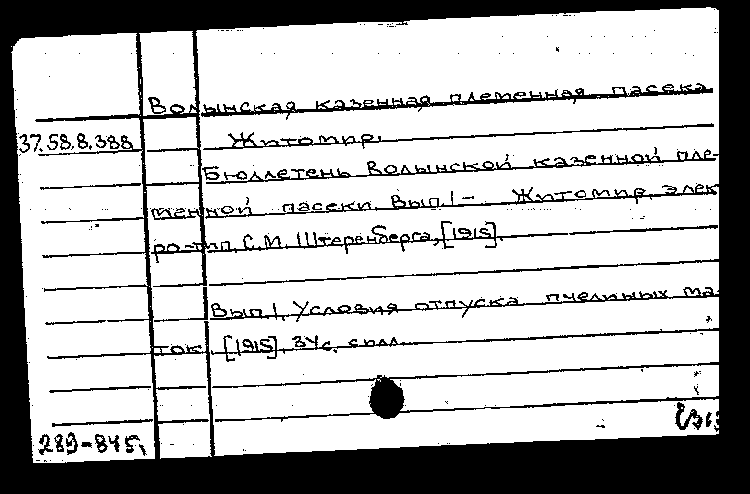 Волынская казенная племенная пасека
37.58.8.388 Житомир.
Бюллетень Волынской казенной пле-
менной пасеки. Вып. I – Житомир, элек
ро-тип. С.М. Штеренберга, [1915].
Вып. I. Условия отпуска пчелиных ма-
ток. [1915]. 34с. силл.
289-845,